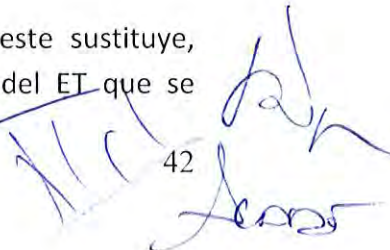 este sustituye,
del ET que se
42